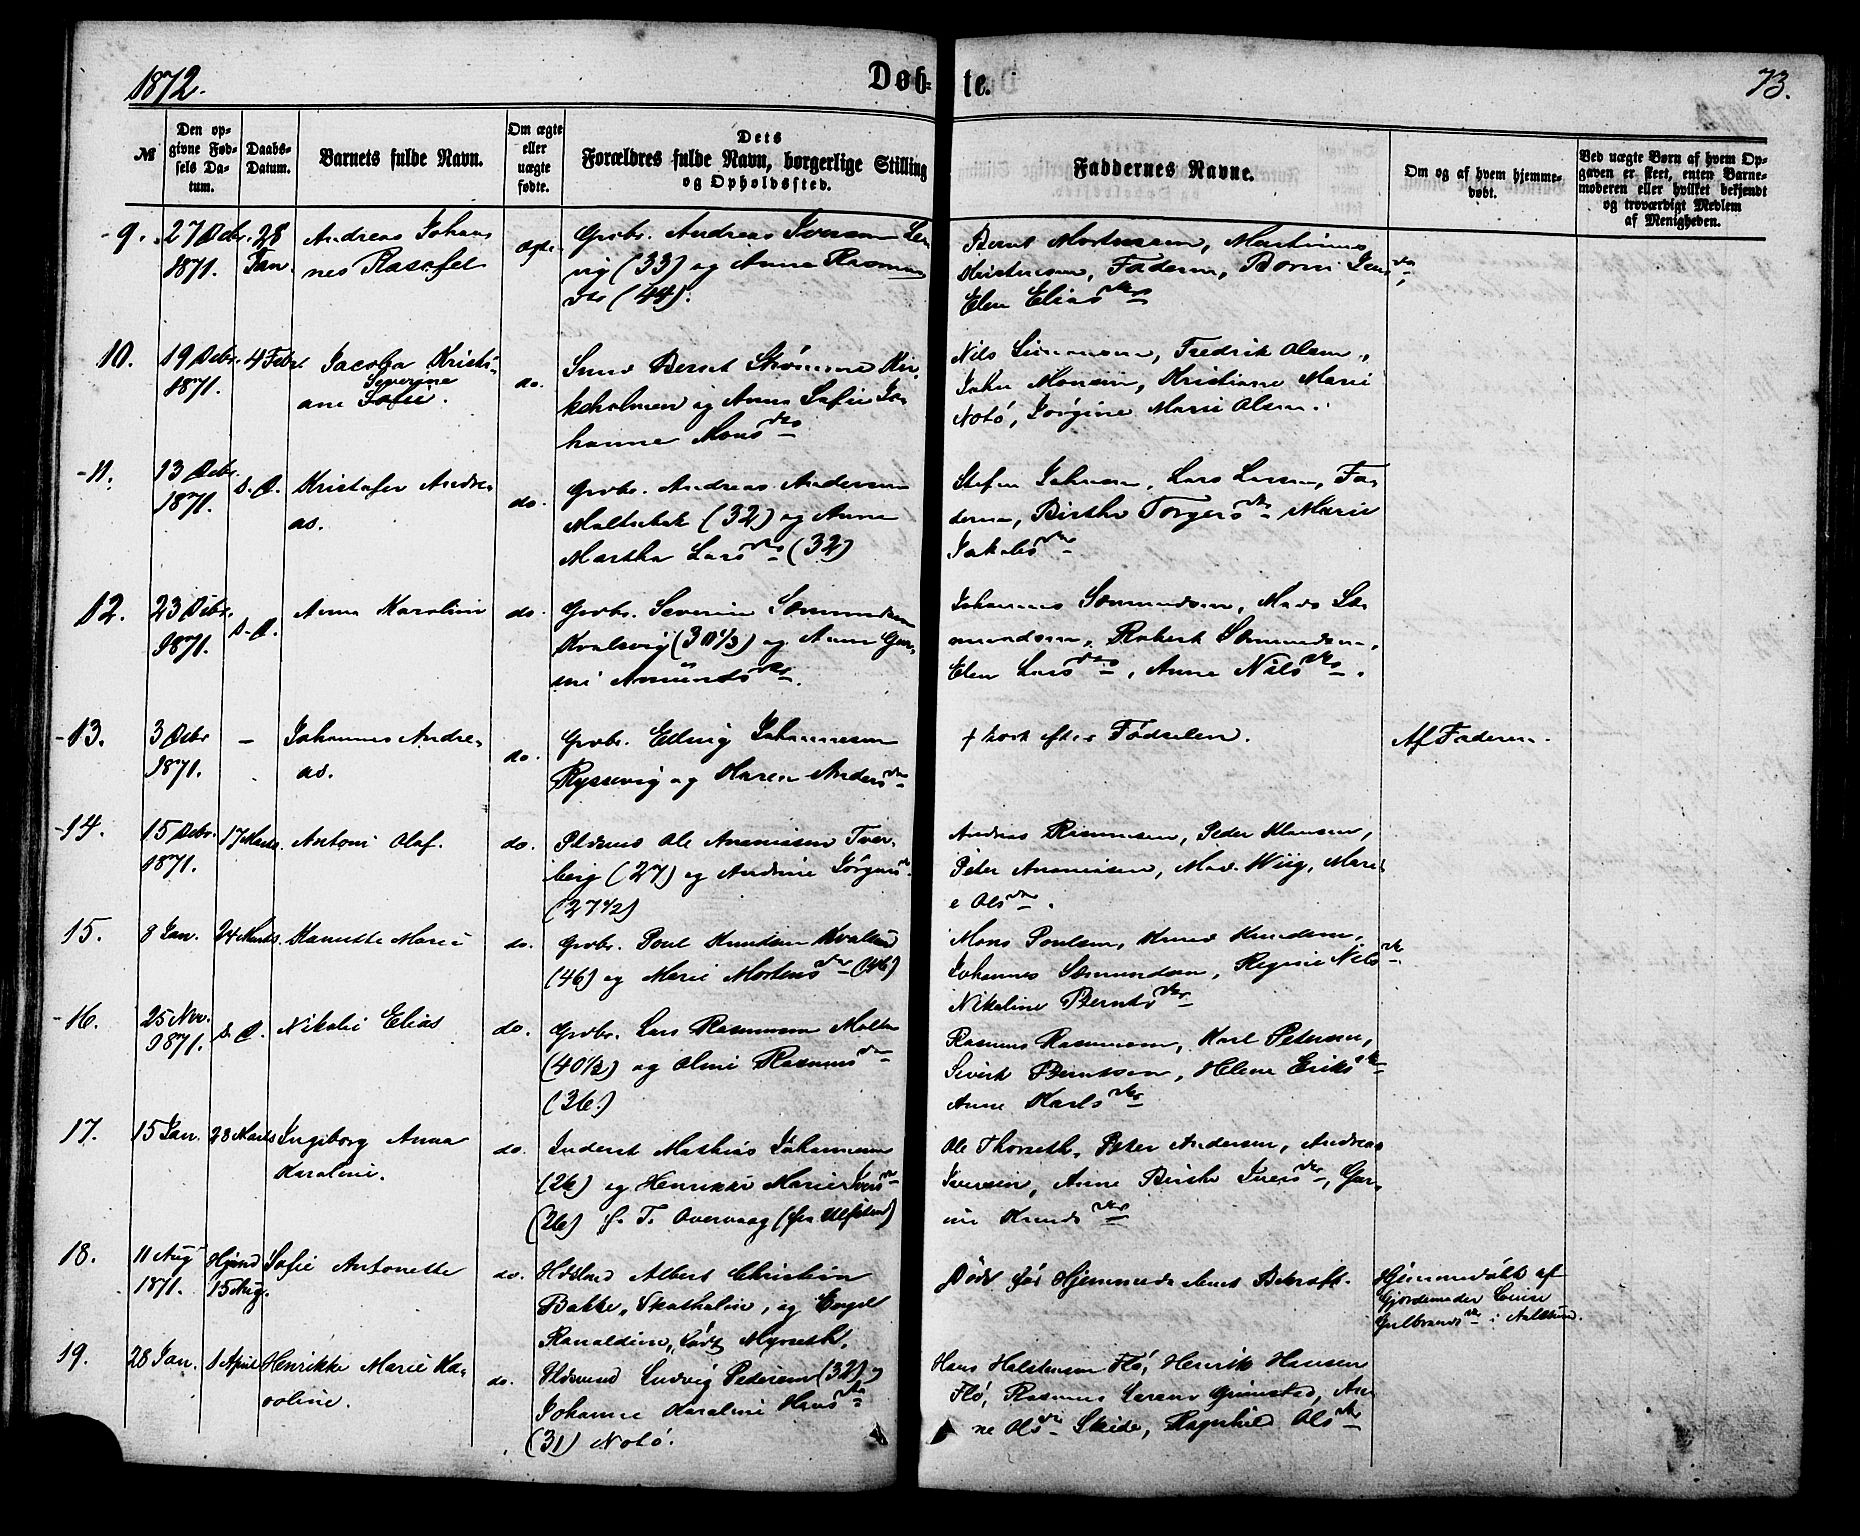 1872.
Døb-
te.
73.
№
Den op-
givne Fød-
sels Da-
tum.
Daabs-
Datum.
Barnets fulde Navn.
Om ægte
eller
uægte
fødte.
Dets
Forældres fulde Navn, borgerlige Stilling
og Opholdssted.
Faddernes Navne.
Om og af hvem hjemme-
døbt.
Ved uægte Børn af hvem Op-
gaven er skeet, enten Barne-
moderen eller hvilket bekjendt
og troværdigt Medlem
af Menigheden.
9.
27 Debr.
1871.
28
Jan.
Andreas Johan
nes
ægte.
Grbr. Andreas Iversen
vig (33) og Anne Rasmus
dtr (44).
Bernt Mortensen, Martinus
Kristensen, Faderen, Iversdtr,
Elen Eliasdtr
10.
19 Debr.
1871.
4 Febr.
Jacoba Kristi-
Severine
ane Sofie.
do.
Kir-
keholmen og Anna Sofie Jo-
hanne Monsdtr
Nils Simonsen, Fredrik Olsen,
John Monsen, Kristiane Marie
Notø, Jørgine Marie Olsen.
11.
13 Debr.
1871.
s. D.
Kristofer Andre-
as.
do.
Grbr. Andreas Andersen
(32) og Anne
Martha Larsdtr (32)
Stefen Johnsen, Lars Larsen, Fa-
deren, Birthe Torgersdtr Marie
Jakobsdtr
12.
23 Debr.
1871.
s. D.
Anna Karoline
do.
Grbr. Severin Sæmundsen
Kvalsvig (30 1/3) og Anne Gur-
ine Amundsdtr.
Johannes Sæmundsen, Mads Sæ-
mundsen, Robert Sæmundsen,
Elen Larsdtr, Anne Nilsdtr.
13.
3 Debr
1871.
-
Johannes Andre-
as.
do.
Grbr. Elling Johannesen
Ryssevig og Karen Andersdtr
† kort efter Fødselen.
Af Faderen.
14.
15 Debr.
1871.
17 Marts.
Antoni Olaf.
do.
Pldsmd Ole Ananiasen Tver-
berg (27) og Andrine Jørgensdtr
(27 1/2)
Andreas Rasmussen, Peder Klausen,
Peter Ananiasen, Mad. Wiig, Mari-
e Olsdtr.
15.
8 Jan.
24 Marts.
Kanutte Marie
do.
Grbr. Poul Knudsen Kvalsund
(46) og Marie Mortensdtr (46)
Mons Poulsen, Knud Knudsen,
Johannes Sæmundsen, Regine Nilsdtr
Nikoline Berntsdtr
16.
25 Nov.
1871.
s. D.
Nikolai Elias
do.
Grbr. Lars Rasmussen
(40 1/2) og Oline Rasmusdtr
(36.)
Rasmus Rasmussen, Karl Petersen,
Sivert Berntsen, Helene Eriksdtr
Anne Karlsdtr
17.
15 Jan.
28 Marts
Ingeborg Anna
Karoline.
do.
Inderst Mathias Johannesen
(26) og Henrikke Marie Iversdtr
(26) f. T. Overvaag (fra Ulfsten)
Ole Thorseth, Peter Andersen, Andreas
Iversen, Anne Birthe Iversdtr, Gur-
ine Knudsdtr
18.
11 Aug
1871.
Hjemd
15 Aug.
Sofie Antonette
do.
Albert Christian
Bakke, Skatholm, og Engel
Ranaldine, født Myrseth.
Død før Hjemmedaabens Bekræft.
Hjemmedøbt af
Gjordemoder Louise
Gulbrandsdtr i Aalesund.
19.
28 Jan.
1 April
Henrikke Marie Ka-
roline.
do.
Ludvig Pedersen (32) og
Johanne Karoline Hansdtr
(31) Notø.
Hans Halstensen Flø, Henrik Hansen
Flø, Rasmus Larsen Grimstad, An-
ne Olsdtr Skeide, Ragnhild Olsdtr